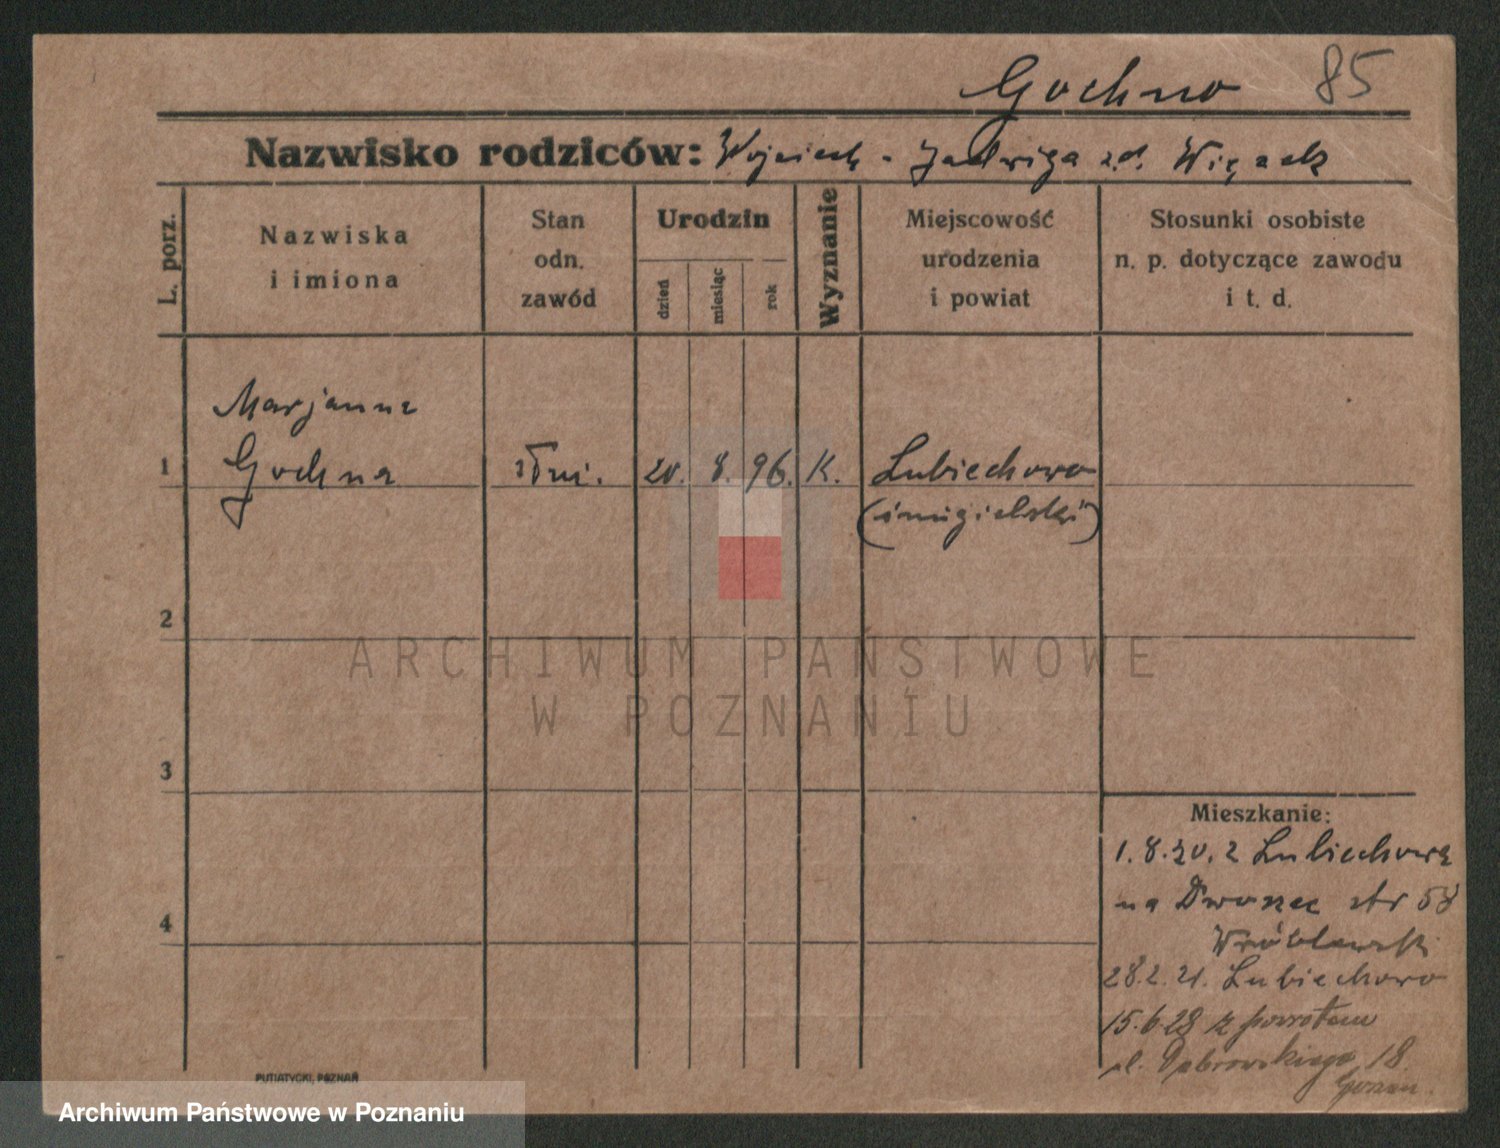 Gochno 85
Nazwisko rodziców: Wojciech - Jadwiga z.d. Więzek
L. porz.
Nazwiska
i imiona
Stan
odn.
zawód
Urodzin
dzień
miesiąc
rok
Wyznanie
Miejscowość
urodzenia
i powiat
Stosunki osobiste
n. p. dotyczące zawodu
i t. d.
Marjanna
1 Gochna 20. 8. 96. K. Lubiechowo
(śmigielski)
2
3
4
Mieszkanie:
1.8.20. z Lubiechowa
na Dworzec str 58
28.2.21. Lubiechowo
15.6.28 z powrotem
pl. Dąbrowskiego 18
PUTIATYCKI, POZNAŃ
ARCHIWUM PAŃSTWOWE
W POZNANIU
Archiwum Państwowe w Poznaniu